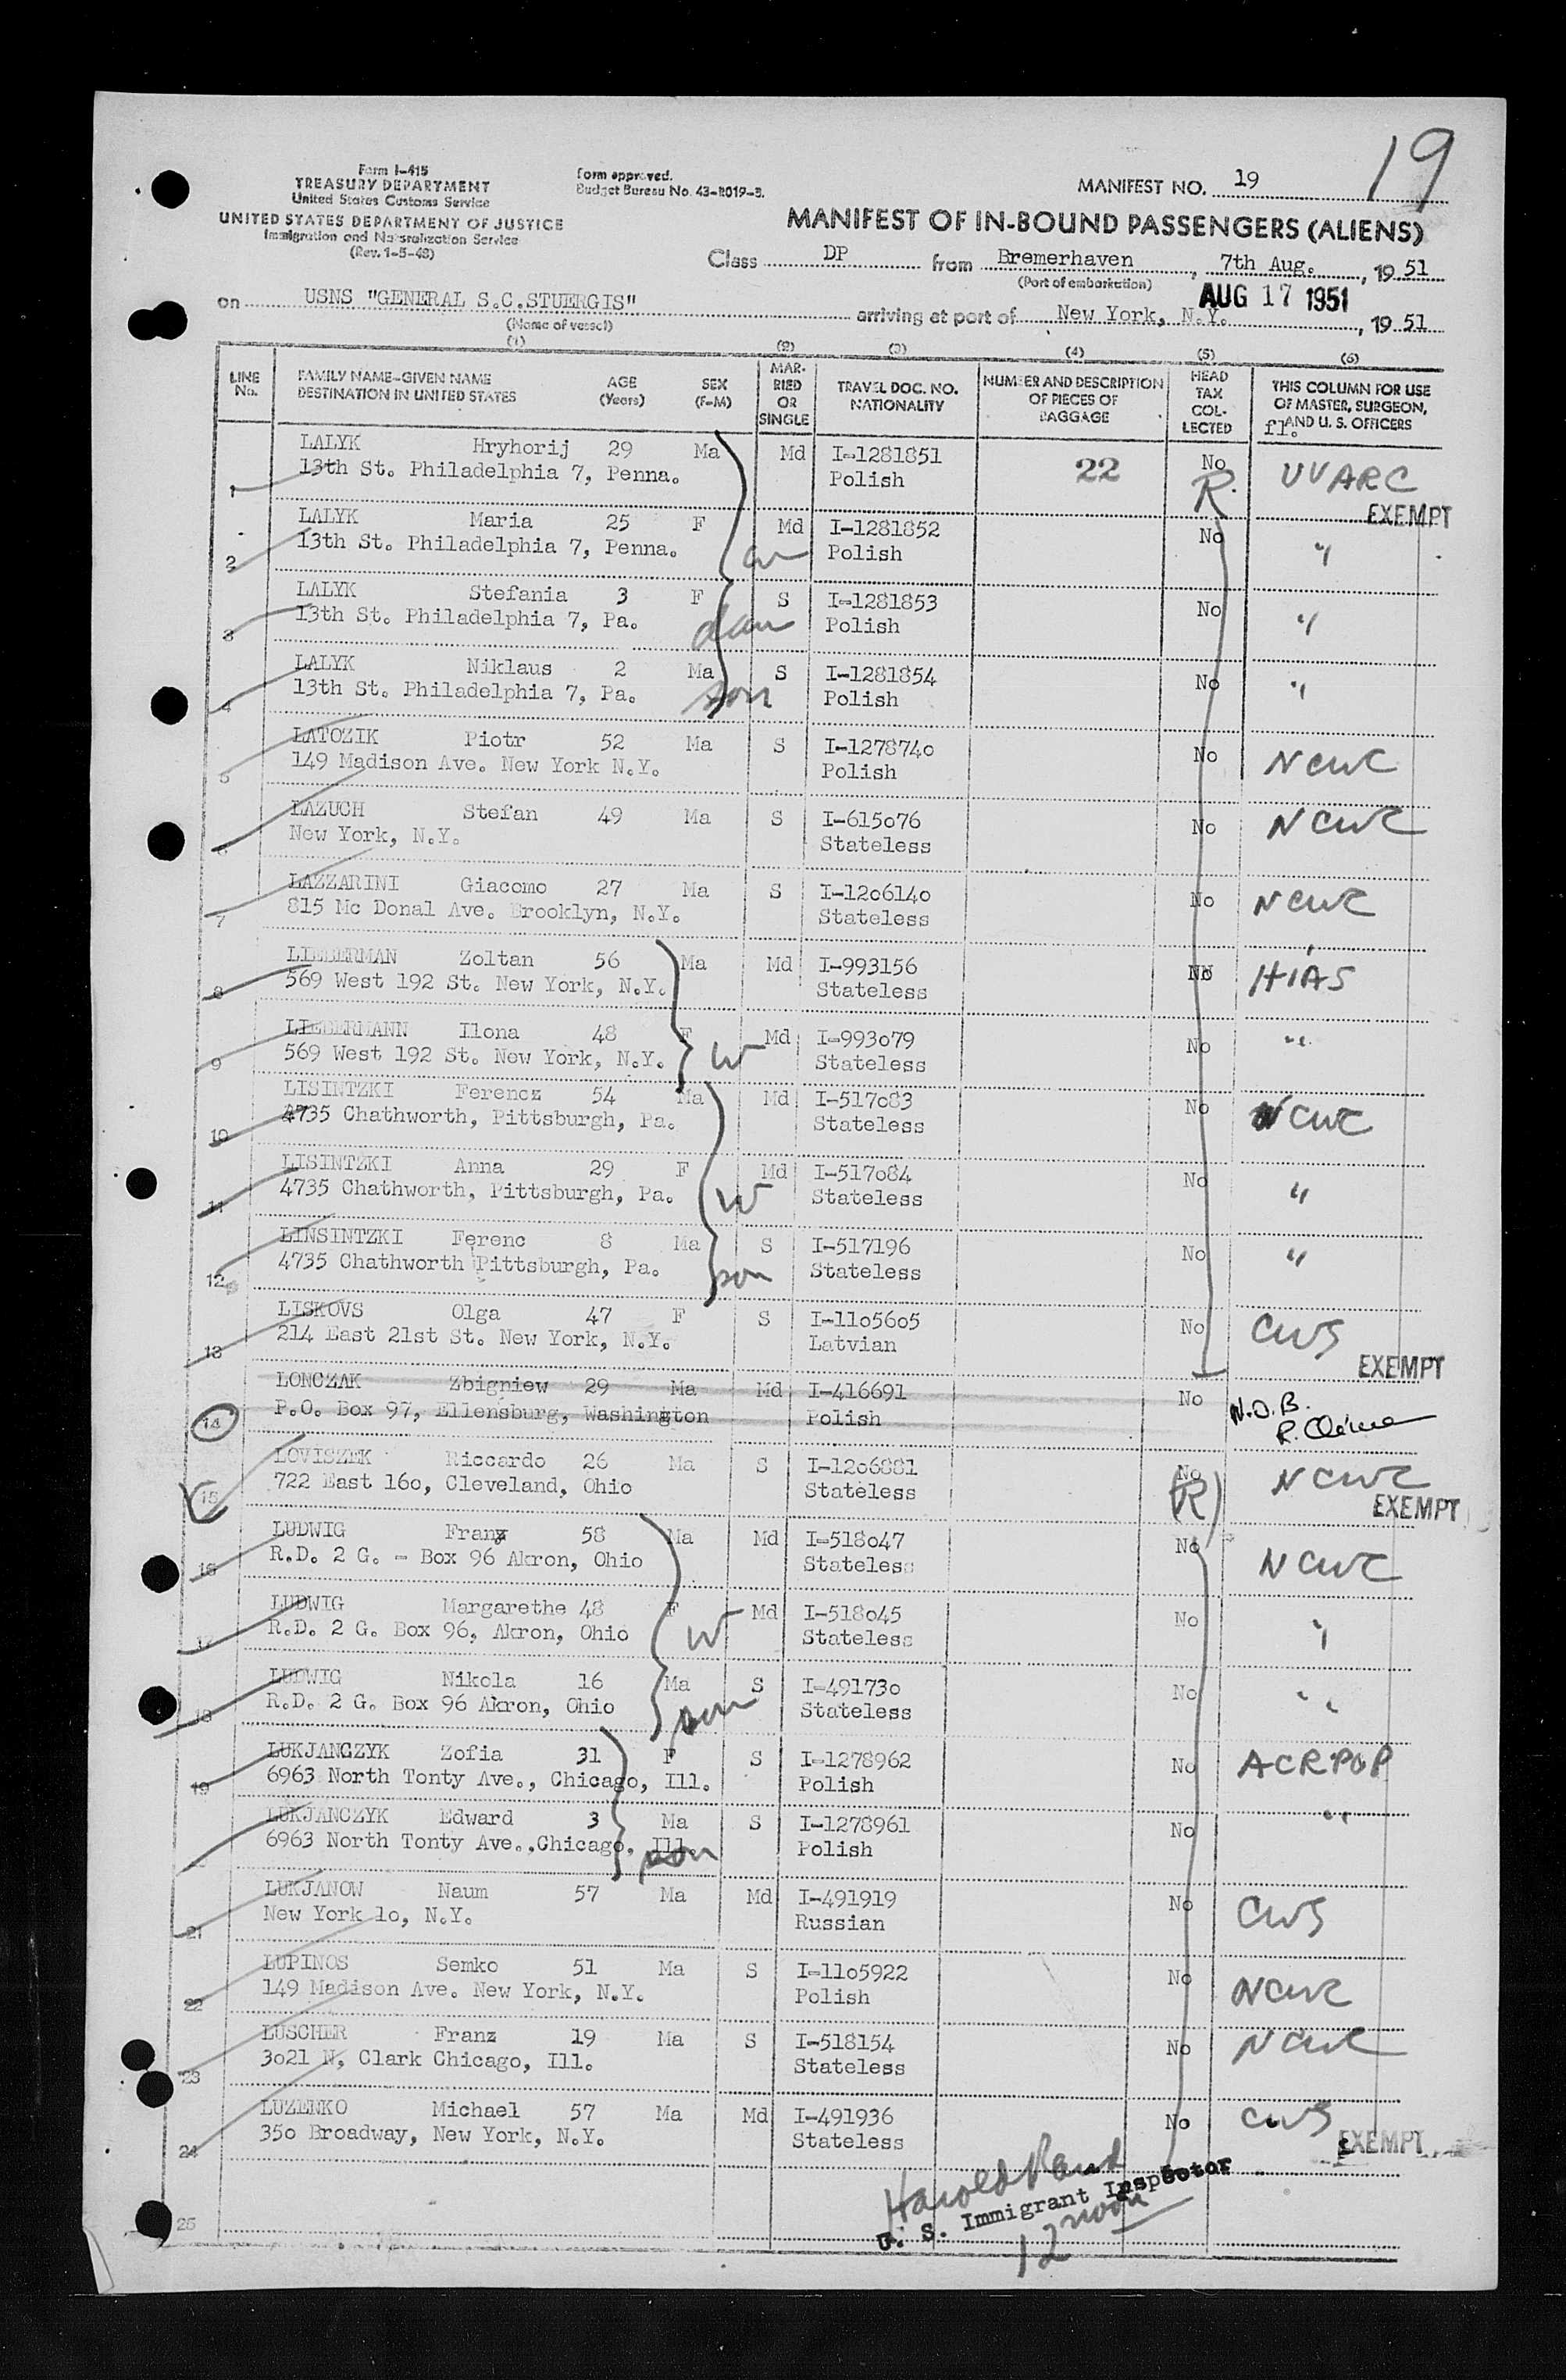 19
Form I-415
TREASURY DEPARTMENT
United States Customs Service
UNITED STATES DEPARTMENT OF JUSTICE
Immigration and Naturalization Service
(Rev. 1-5-48)
Form approved.
Budget Bureau No. 43-R019-3.
MANIFEST NO. 19
MANIFEST OF IN-BOUND PASSENGERS (ALIENS)
Class DP from Bremerhaven, 7th Aug., 19 51
(Port of embarkation)
AUG 17 1951
on USNS "GENERAL S.C.STUERGIS" arriving at port of New York, N.Y., 19 51
(Name of vessel)
(1) (2) (3) (4) (5) (6)
LINE No. FAMILY NAME-GIVEN NAME DESTINATION IN UNITED STATES AGE (Years) SEX (F-M) MARRIED OR SINGLE TRAVEL DOC. NO. NATIONALITY NUMBER AND DESCRIPTION OF PIECES OF BAGGAGE HEAD TAX COLLECTED THIS COLUMN FOR USE OF MASTER, SURGEON, AND U. S. OFFICERS
fl.
LALYK Hryhorij 29 Ma Md I-1281851 22 No UUARC
1 13th St. Philadelphia 7, Penna. Polish R. EXEMPT
LALYK Maria 25 F Md I-1281852 No "
2 13th St. Philadelphia 7, Penna. w Polish
LALYK Stefania 3 F S I-1281853 No "
3 13th St. Philadelphia 7, Pa. dau Polish
LALYK Niklaus 2 Ma S I-1281854 No "
4 13th St. Philadelphia 7, Pa. son Polish
LATOZIK Piotr 52 Ma S I-1278740 No NCWC
5 149 Madison Ave. New York N.Y. Polish
LAZUCH Stefan 49 Ma S I-615o76 No NCWC
6 New York, N.Y. Stateless
LAZZARINI Giacomo 27 Ma S I-12o614o No NCWC
7 815 Mc Donal Ave. Brooklyn, N.Y. Stateless
LIEBERMAN Zoltan 56 Ma Md I-993156 No HIAS
8 569 West 192 St. New York, N.Y. Stateless
LIEBERMANN Ilona 48 F Md I-993o79 No "
9 569 West 192 St. New York, N.Y. W Stateless
LISINTZKI Ferencz 54 Ma Md I-517o83 No NCWC
10 4735 Chathworth, Pittsburgh, Pa. Stateless
LISINTZKI Anna 29 F Md I-517o84 No "
11 4735 Chathworth, Pittsburgh, Pa. W Stateless
LINSINTZKI Ferenc 8 Ma S I-517196 No "
12 4735 Chathworth Pittsburgh, Pa. son Stateless
LISKOVS Olga 47 F S I-11o56o5 No CWS
13 214 East 21st St. New York, N.Y. Latvian EXEMPT
LONCZAK Zbigniew 29 Ma Md I-416691 No N.O.B.
14 P.O. Box 97, Ellensburg, Washington Polish
LOVISZEK Riccardo 26 Ma S I-12o6881 No NCWC
15 722 East 16o, Cleveland, Ohio Stateless (R) EXEMPT
LUDWIG Franz 58 Ma Md I-518o47 No NCWC
16 R.D. 2 G. - Box 96 Akron, Ohio Stateless
LUDWIG Margarethe 48 F Md I-518o45 No "
17 R.D. 2 G. Box 96, Akron, Ohio W Stateless
LUDWIG Nikola 16 Ma S I-49173o No "
18 R.D. 2 G. Box 96 Akron, Ohio son Stateless
LUKJANCZYK Zofia 31 F S I-1278962 No ACRPOP
19 6963 North Tonty Ave., Chicago, Ill. Polish
LUKJANCZYK Edward 3 Ma S I-1278961 No "
6963 North Tonty Ave.,Chicago, Ill. son Polish
LUKJANOW Naum 57 Ma Md I-491919 No CWS
21 New York 1o, N.Y. Russian
LUPINOS Semko 51 Ma S I-11o5922 No NCWC
22 149 Madison Ave. New York, N.Y. Polish
LUSCHER Franz 19 Ma S I-518154 No NCWC
23 3o21 N, Clark Chicago, Ill. Stateless
LUZENKO Michael 57 Ma Md I-491936 No CWS
24 35o Broadway, New York, N.Y. Stateless EXEMPT
Harold
U. S. Immigrant Inspector
25
12 noon